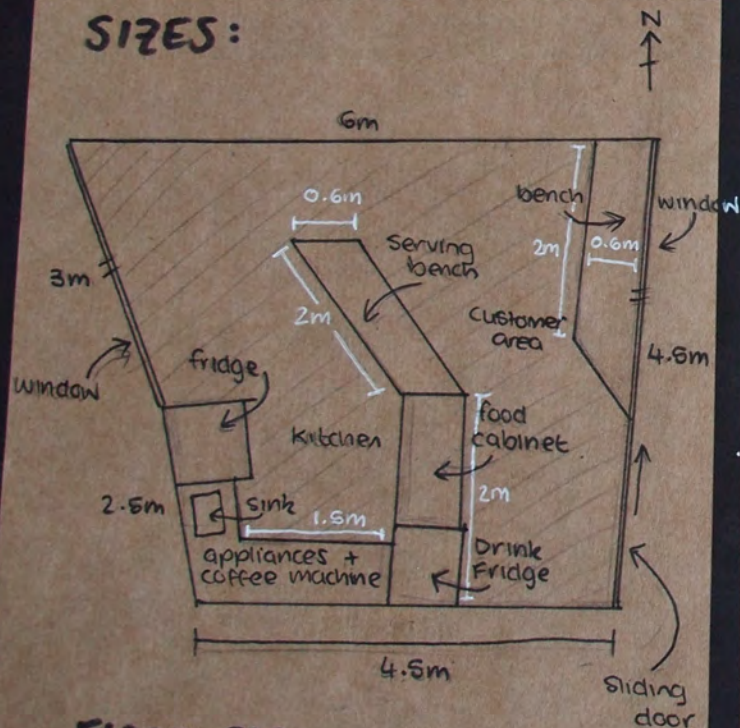 SIZES:
N
6m
0.6m
bench
window
serving
bench
2m
0.6m
3m
2m
customer
area
4.5m
fridge
window
food
cabinet
kitchen
2.5m
sink
1.5m
2m
appliances +
coffee machine
Drink
Fridge
4.5m
sliding
door